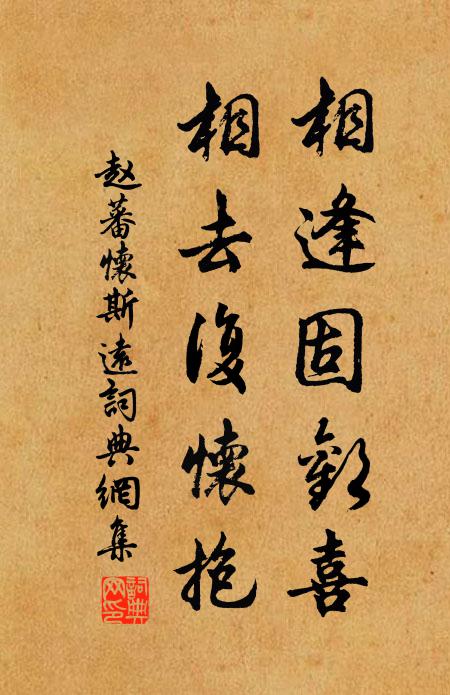 相逢固歡喜
相去復懷抱
赵蕃懷斯遠詞典網集
詞典網印